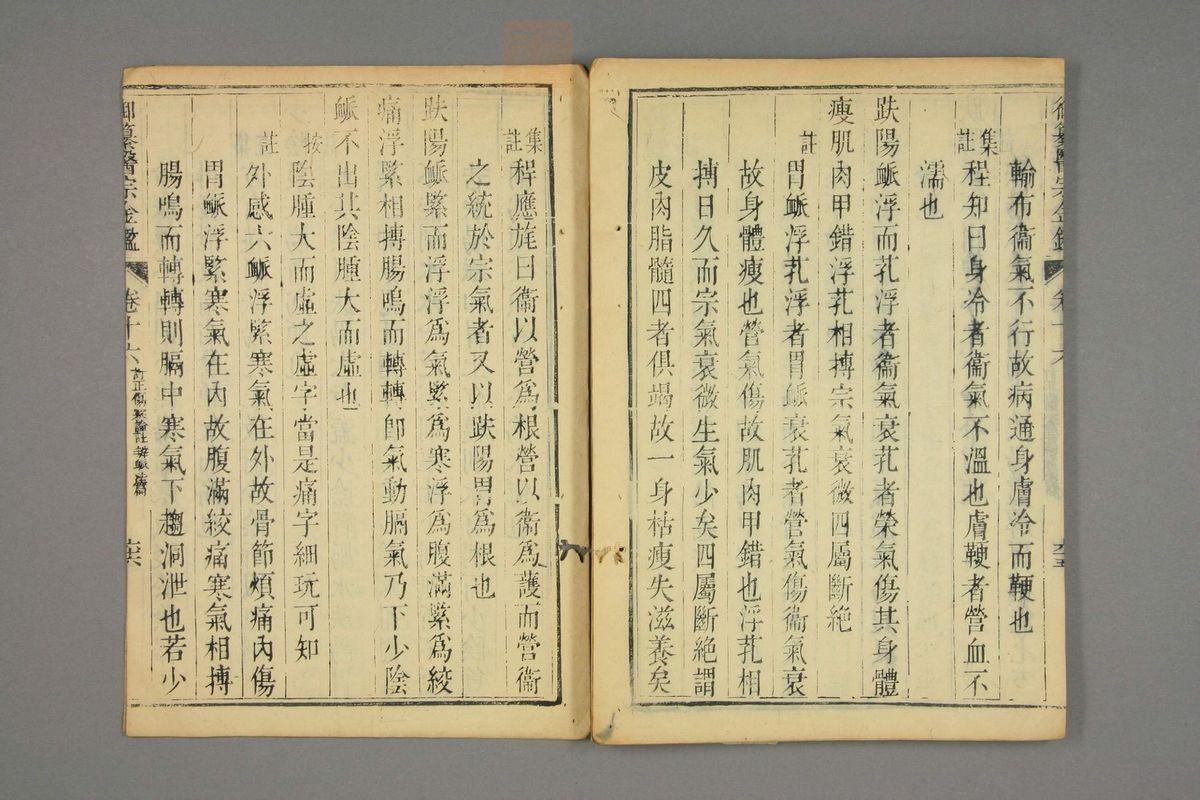 輸布衞氣不行故病通身膚冷而鞕也
集註程知曰身冷者衞氣不溫也膚鞕者營血不
濡也
趺陽脈浮而芤浮者衞氣衰芤者榮氣傷其身體
瘦肌肉甲錯浮芤相搏宗氣衰微四屬斷絶
註胃脈浮芤浮者胃脈衰芤者營氣傷衞氣衰
故身體瘦也營氣傷故肌肉甲錯也浮芤相
搏日久而宗氣衰微生氣少矣四屬斷絶謂
皮肉脂髓四者俱竭故一身枯瘦失滋養矣
集註程應旄曰衞以營爲根營以衞爲護而營衞
之統於宗氣者又以趺陽胃爲根也
趺陽脈緊而浮浮爲氣緊爲寒浮爲腹滿緊爲絞
痛浮緊相搏腸鳴而轉轉卽氣動膈氣乃下少陰
脈不出其陰腫大而虛也
按陰腫大而虛之虛字當是痛字細玩可知
註外感六脈浮緊寒氣在外故骨節煩痛內傷
胃脈浮緊寒氣在內故腹滿絞痛寒氣相搏
腸鳴而轉轉則膈中寒氣下趨洞泄也若少
御纂醫宗金鑑 卷十六 訂正傷寒論註辨脈法篇